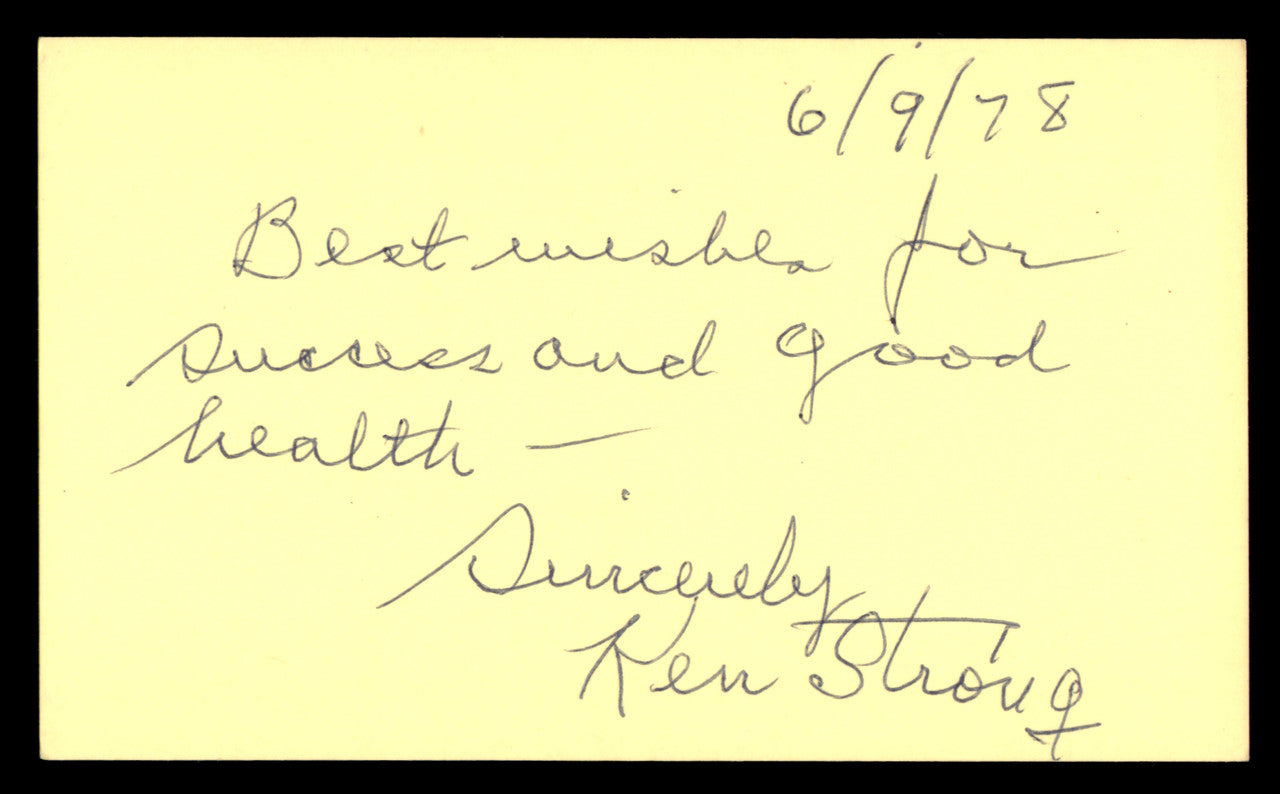 6/9/78
Best wishes for
success and good
health —
Sincerely
Ken Strong